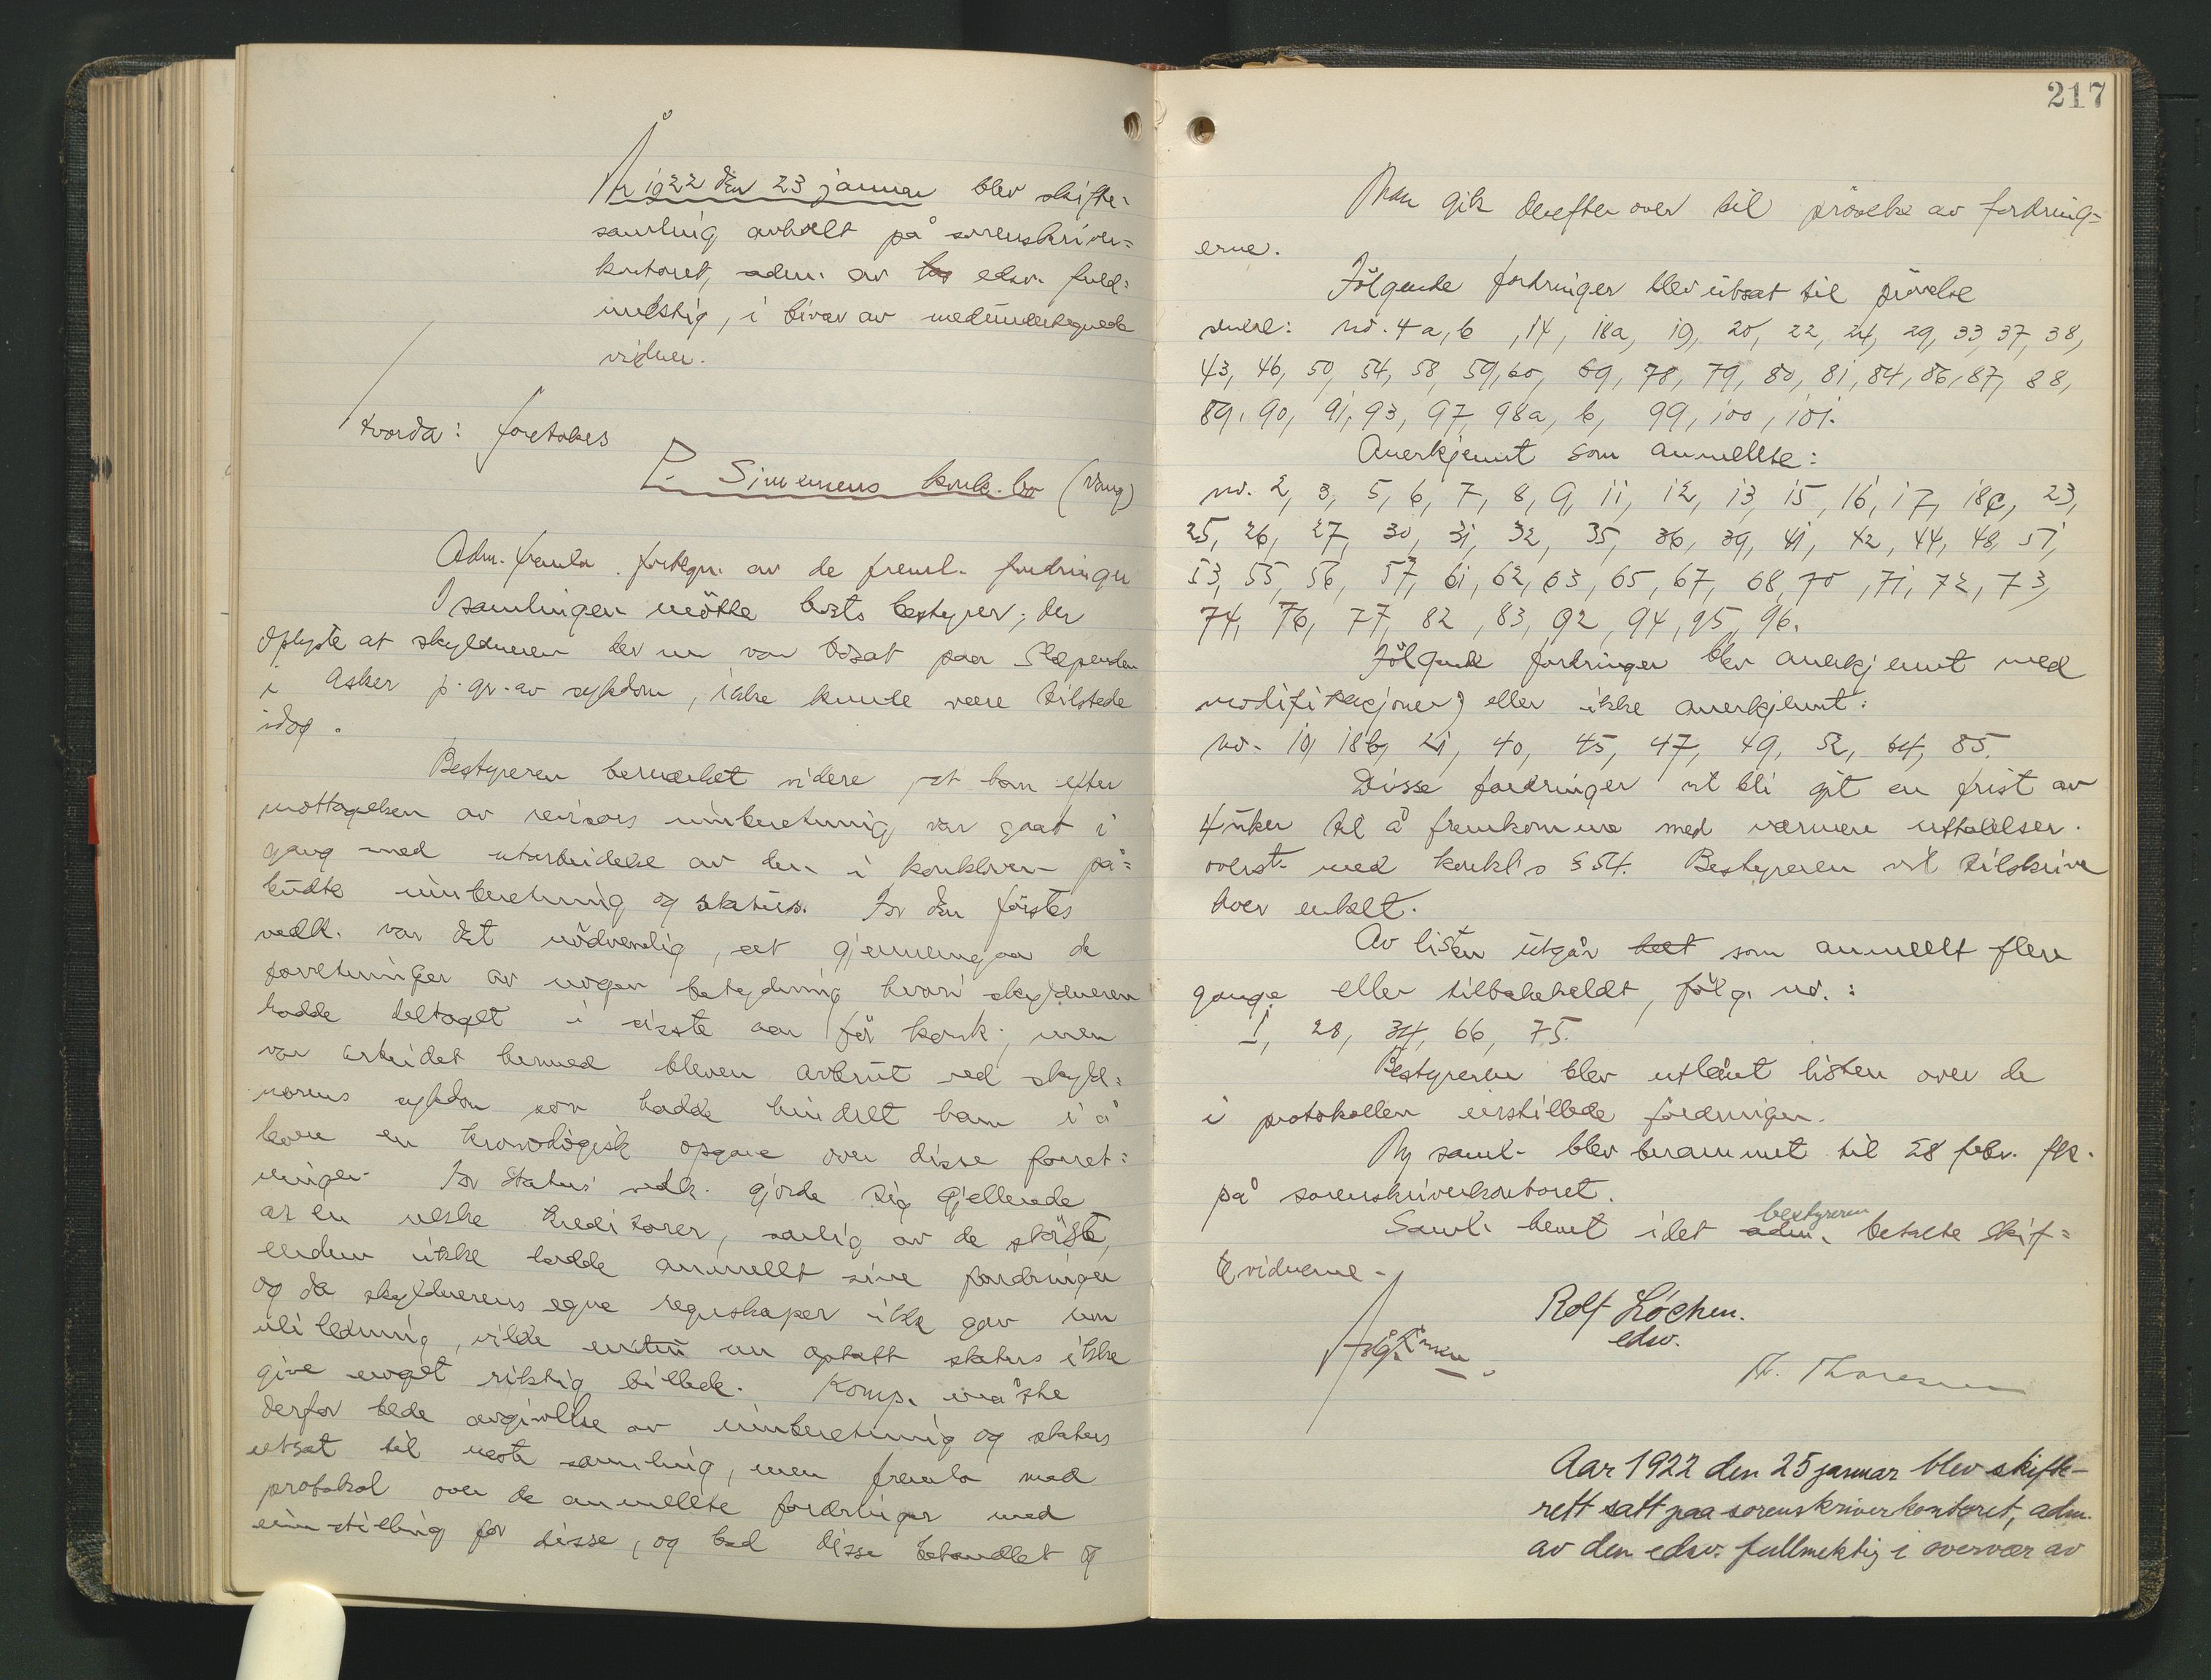 År 1922 den 23 januar blev skifte=
samling avholt på sorenskriver=
kontoret, adm. av edsv. fuld=
mektig, i bivær av medundertegnede
vidner.
Hvorda: foretokes
P. Simensens konk.bo (Vang)
Adm. freml. fortegn. av de freml. fordringer
I samlingen møtte boets bestyrer, der
oplyste at skyldneren der nu var bosat paa Slependen
i Asker p.gr.av sykdom, ikke kunde være tilstede
idag.
Bestyreren bemerket videre, at han efter
mottagelsen av revisors innberetning var gaat i
gang med utarbeidelse av den i konkloven på=
budte innberetning og status. For den førstes
vedk. var det nødvendig, at gjennemgaa de
forretninger av nogen betydning hvori skyldneren
hadde deltaget i siste aar før konk., men
var arbeidet hermed bleven avbrut ved skyld=
nerens sykdom som hadde hindret ham i å
levere en kronologisk opgave over disse forret=
ninger. For status' vedk. gjorde sig gjellende
at en rekke kreditorer, særlig av de største,
endnu ikke hadde anmellt sine fordringer
og da skyldnerens egne regnskaper ikke gav
veiledning, vilde en optatt status ikke
give noget riktig billede. Komp. måtte
derfor bede avgivelse av innberetning og status
utsat til næste samling, men fremla med
protokol over de anmellte fordringer med
innstilling for disse, og bad disse behandlet og
217
Man gik derefter over til prøvelse av fordring=
erne.
Følgende fordringer blev utsat til prøvelse
senere: no. 4a, b, 14, 18a, 19, 20, 22, 24, 29, 33, 37, 38,
43, 46, 50, 54, 58, 59, 60, 69, 78, 79, 80, 81, 84, 86, 87, 88,
89, 90, 91, 93, 97, 98a, b, 99, 100, 101.
Anerkjennt som anmellte:
no. 2, 3, 5, 6, 7, 8, 9, 11, 12, 13, 15, 16, 17, 18c, 23,
25, 26, 27, 30, 31, 32, 35, 36, 39, 41, 42, 44, 48, 51,
53, 55, 56, 57, 61, 62, 63, 65, 67, 68, 70, 71, 72, 73,
74, 76, 77, 82, 83, 92, 94, 95, 96.
Følgende fordringer blev anerkjennt med
modifikasjoner, eller ikke anerkjennt:
no. 10, 18b, 21, 40, 45, 47, 49, 52, 64, 85.
Disse fordringer vil bli git en frist av
4 uker til å fremkomme med nærmere uttalelser.
overst. med konkl § 54. Bestyreren vil tilskrive
hver enkelt.
Av listen utgår helt som anmellt flere
gange eller tilbakeholdt, følg. no.:
1, 28, 34, 66, 75.
Bestyreren blev utlånt listen over de
i protokollen innstillede fordringer.
Ny saml. blev berammet til 28 febr. fk.
på sorenskriverkontoret.
Saml. hevet idet adm. bestyreren betalte skif=
tevidnerne.
Rolf Løchen.
edsv.
H. Thoresen
Aar 1922 den 25 januar blev skifte-
rett satt paa sorenskriverkontoret, adm.
av den edsv. fullmektig i overvær av